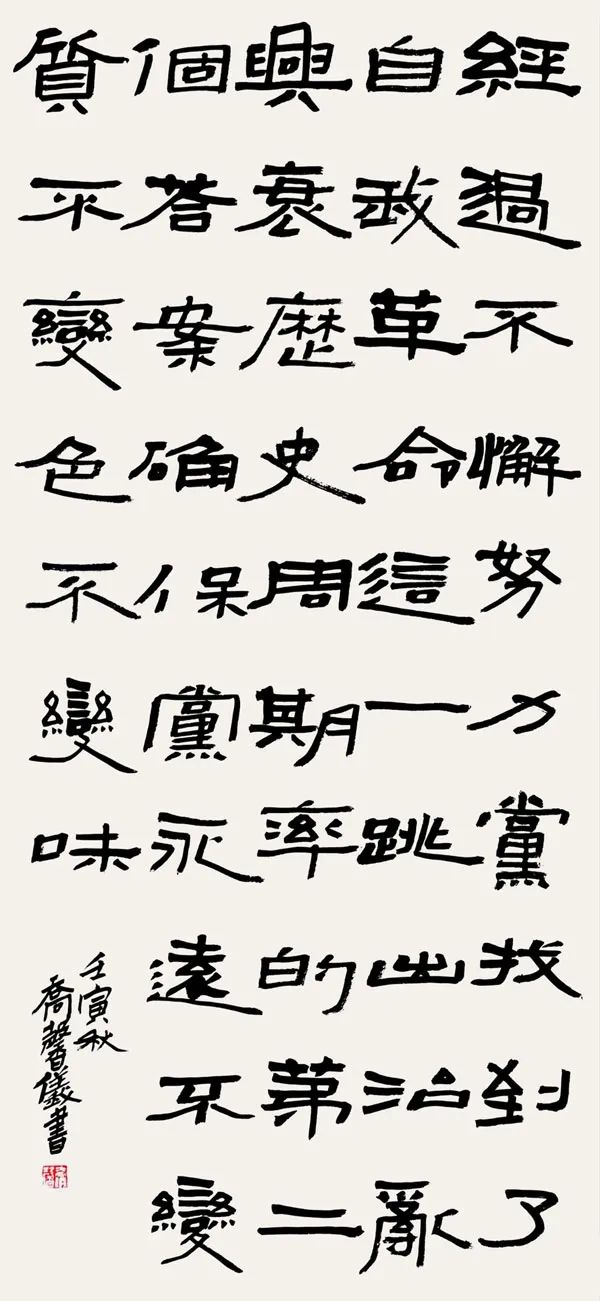 經過不懈努力黨找到了
自我革命這一跳出治亂
興衰歷史周期率的第二
個荅案确保黨永遠不變
質不變色不變味
壬寅秋
喬馨儀書